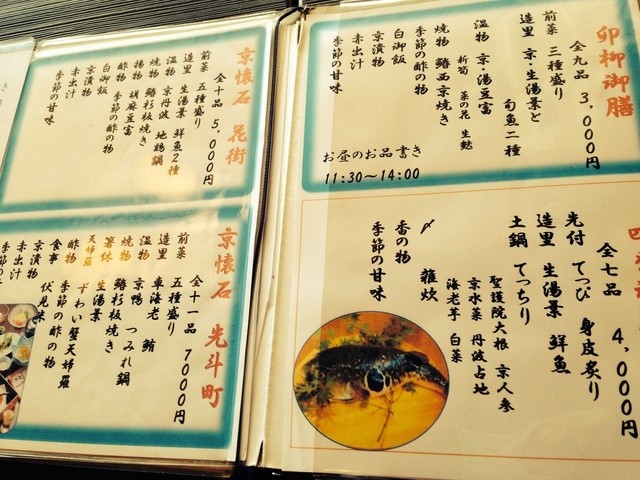 卯柳御膳
全九品 3,000円
前菜 三種盛り
造里 京・生湯葉と
旬魚二種
温物 京・湯豆富
新筍 菜の花 生麩
焼物 鰆西京焼き
季節の酢の物
白御飯
京漬物
赤出汁
季節の甘味
お昼のお品書き
11:30～14:00
全七品 4,000円
先付 てっぴ 身皮炙り
造里 生湯葉 鮮魚
土鍋 てっちり
聖護院大根 京人参
京水菜 丹波占地
海老芋 白菜
〆 雑炊
香の物
季節の甘味
京懐石 花街
全十品 5,000円
前菜 五種盛り
造里 生湯葉 鮮魚2種
温物 京丹波 地鶏鍋
焼物 鰆杉板焼き
揚物 胡麻豆富
酢物 季節の酢の物
白御飯
京漬物
赤出汁
季節の甘味
京懐石 先斗町
全十一品 7000円
前菜 五種盛り
造里 車海老 鮪
温物 京鴨 つみれ鍋
焼物 鰆杉板焼き
箸休 生湯葉
天婦羅 ずわい蟹天婦羅
酢物 季節の酢の物
食事
京漬物
赤出汁